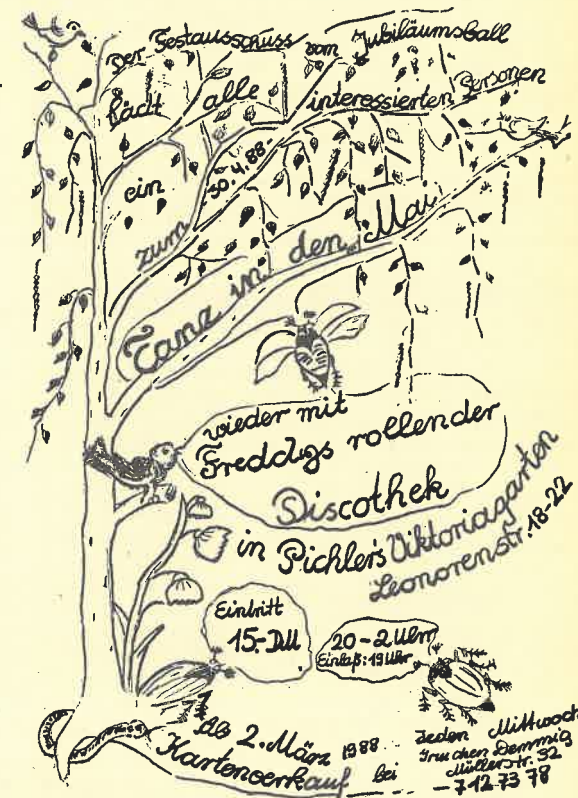 Der Festausschuss vom Jubiläumsball
lädt alle interessierten Personen
ein zum 30.4.88
Tanz in den Mai
wieder mit
Freddys rollender
Discothek
in Pichler's Viktoriagarten
Leonorenstr. 18-22
Eintritt
15.-DM
20-2 Uhr
Einlaß: 19 Uhr
Ab 2. März 1988
Kartenverkauf bei
Jeden Mittwoch
Demmig
Müllerstr. 32
- 712 73 78